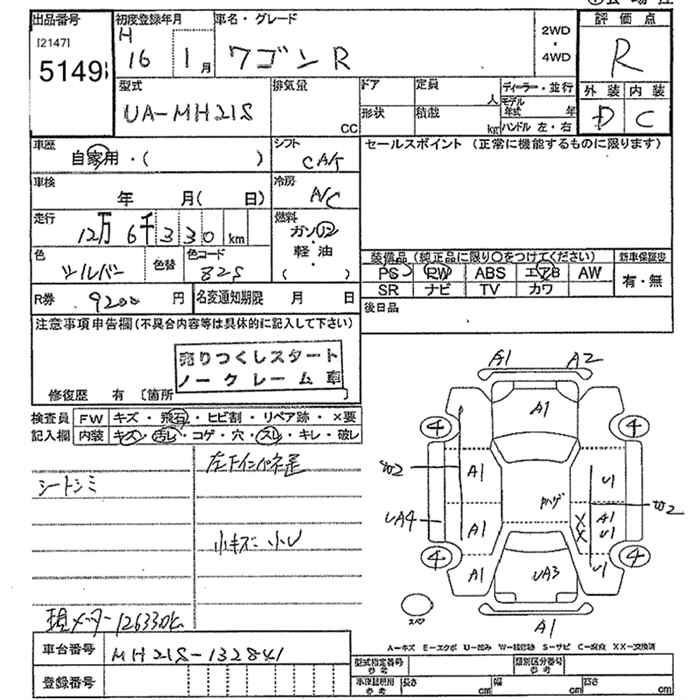 出品番号 初度登録年月 車名・グレード 2WD ・ 4WD 評価点
[2147]
5149 H 16 1月 ワゴンR R
型式 排気量 ドア 定員 人 ディーラー・並行 外装 内装
UA-MH21S CC 形状 積載 kg モデル年式 年 D C
ハンドル 左・右
車歴 自家用・( ) シフト CAT セールスポイント (正常に機能するものに限ります)
車検 年 月( 日) 冷房 A/C
走行 12万 6千 330 km 燃料 ガソリン ・ 軽油 ・ ( )
色 シルバー 色替 色コード 82S
装備品 (純正品に限り○をつけてください) 新車保証書
PS PW ABS エアB AW 有・無
SR ナビ TV カワ
R券 9200 円 名変通知期限 月 日 後日品
注意事項申告欄 (不具合内容等は具体的に記入して下さい)
売りつくしスタート
ノークレーム車
修復歴 有 〔箇所
検査員記入欄 FW キズ・飛石・ヒビ割・リペア跡・×要
内装 キズ・汚レ・コゲ・穴・スレ・キレ・破レ
シートシミ
小キズ 小U
現メーター126330k
A1 A2
A1
4 4
W2 A1 U1
カハゲ W2
UA4 A1 X A1
X U1
4 A1 UA3 U1 4
スペア
A1
A=キズ E=エクボ U=凹み W=補修跡 S=サビ C=腐食 XX=交換済
車台番号 MH21S-132841
登録番号
型式指定番号 参考 類別区分番号 参考
車検証期用 参考 長さ cm 幅 cm 高さ cm